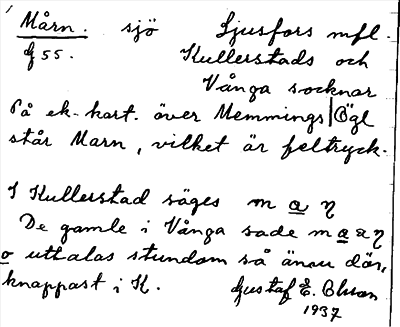 Mårn. sjö Ljusfors mfl.
G 55. Kullerstads och
Vånga socknar
På ek-kart. över Memmings | Ögl
står Marn, vilket är feltryck.
I Kullerstad säges m a η
De gamle i Vånga sade m a a η
o uttalas stundom så ännu där,
knappast i K. Gustaf E.
1937